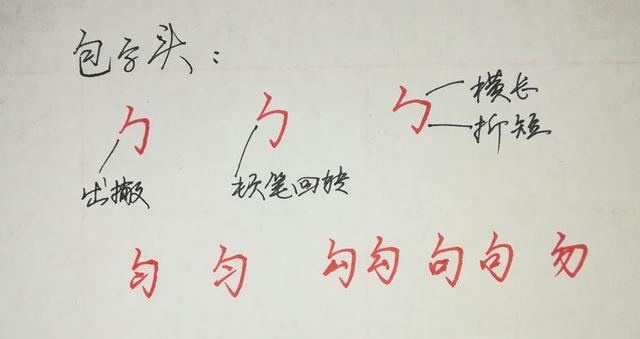 包字头：
勹 勹 勹 横长
折短
出撇 顿笔回转
匀 匀 勾 勾 句 句 勿